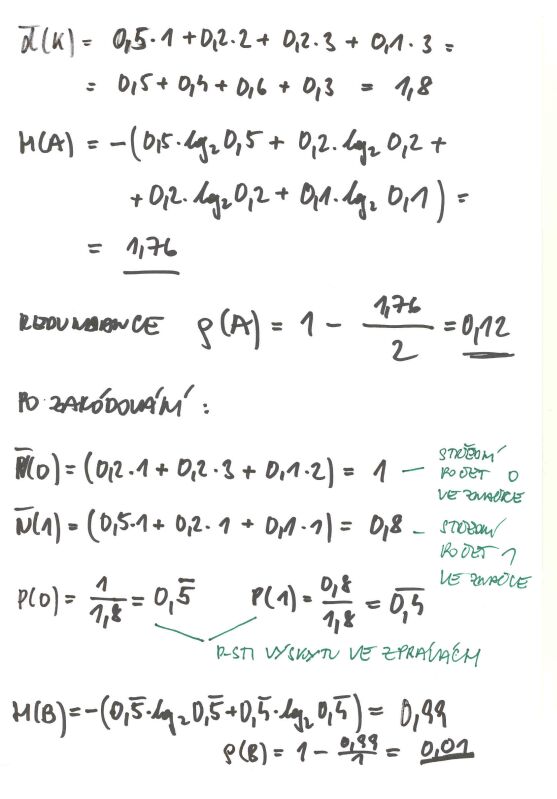 d̄(K) = 0,5·1 + 0,2·2 + 0,2·3 + 0,1·3 =
= 0,5 + 0,4 + 0,6 + 0,3 = 1,8
H(A) = -(0,5·log₂0,5 + 0,2·log₂0,2 +
+ 0,2·log₂0,2 + 0,1·log₂0,1) =
= 1,76
REDUNDANCE ρ(A) = 1 - 1,76/2 = 0,12
PO ZAKÓDOVÁNÍ:
N̄(0) = (0,2·1 + 0,2·3 + 0,1·2) = 1 — STŘEDNÍ
POČET 0
VE ZNAČCE
N̄(1) = (0,5·1 + 0,2·1 + 0,1·1) = 0,8 - STŘEDNÍ
POČET 1
VE ZNAČCE
P(0) = 1/1,8 = 0,5̄ P(1) = 0,8/1,8 = 0,4̄
P-STI VÝSKYTU VE ZPRÁVÁCH
H(B) = -(0,5̄·log₂0,5̄ + 0,4̄·log₂0,4̄) = 0,99
ρ(B) = 1 - 0,99/1 = 0,01